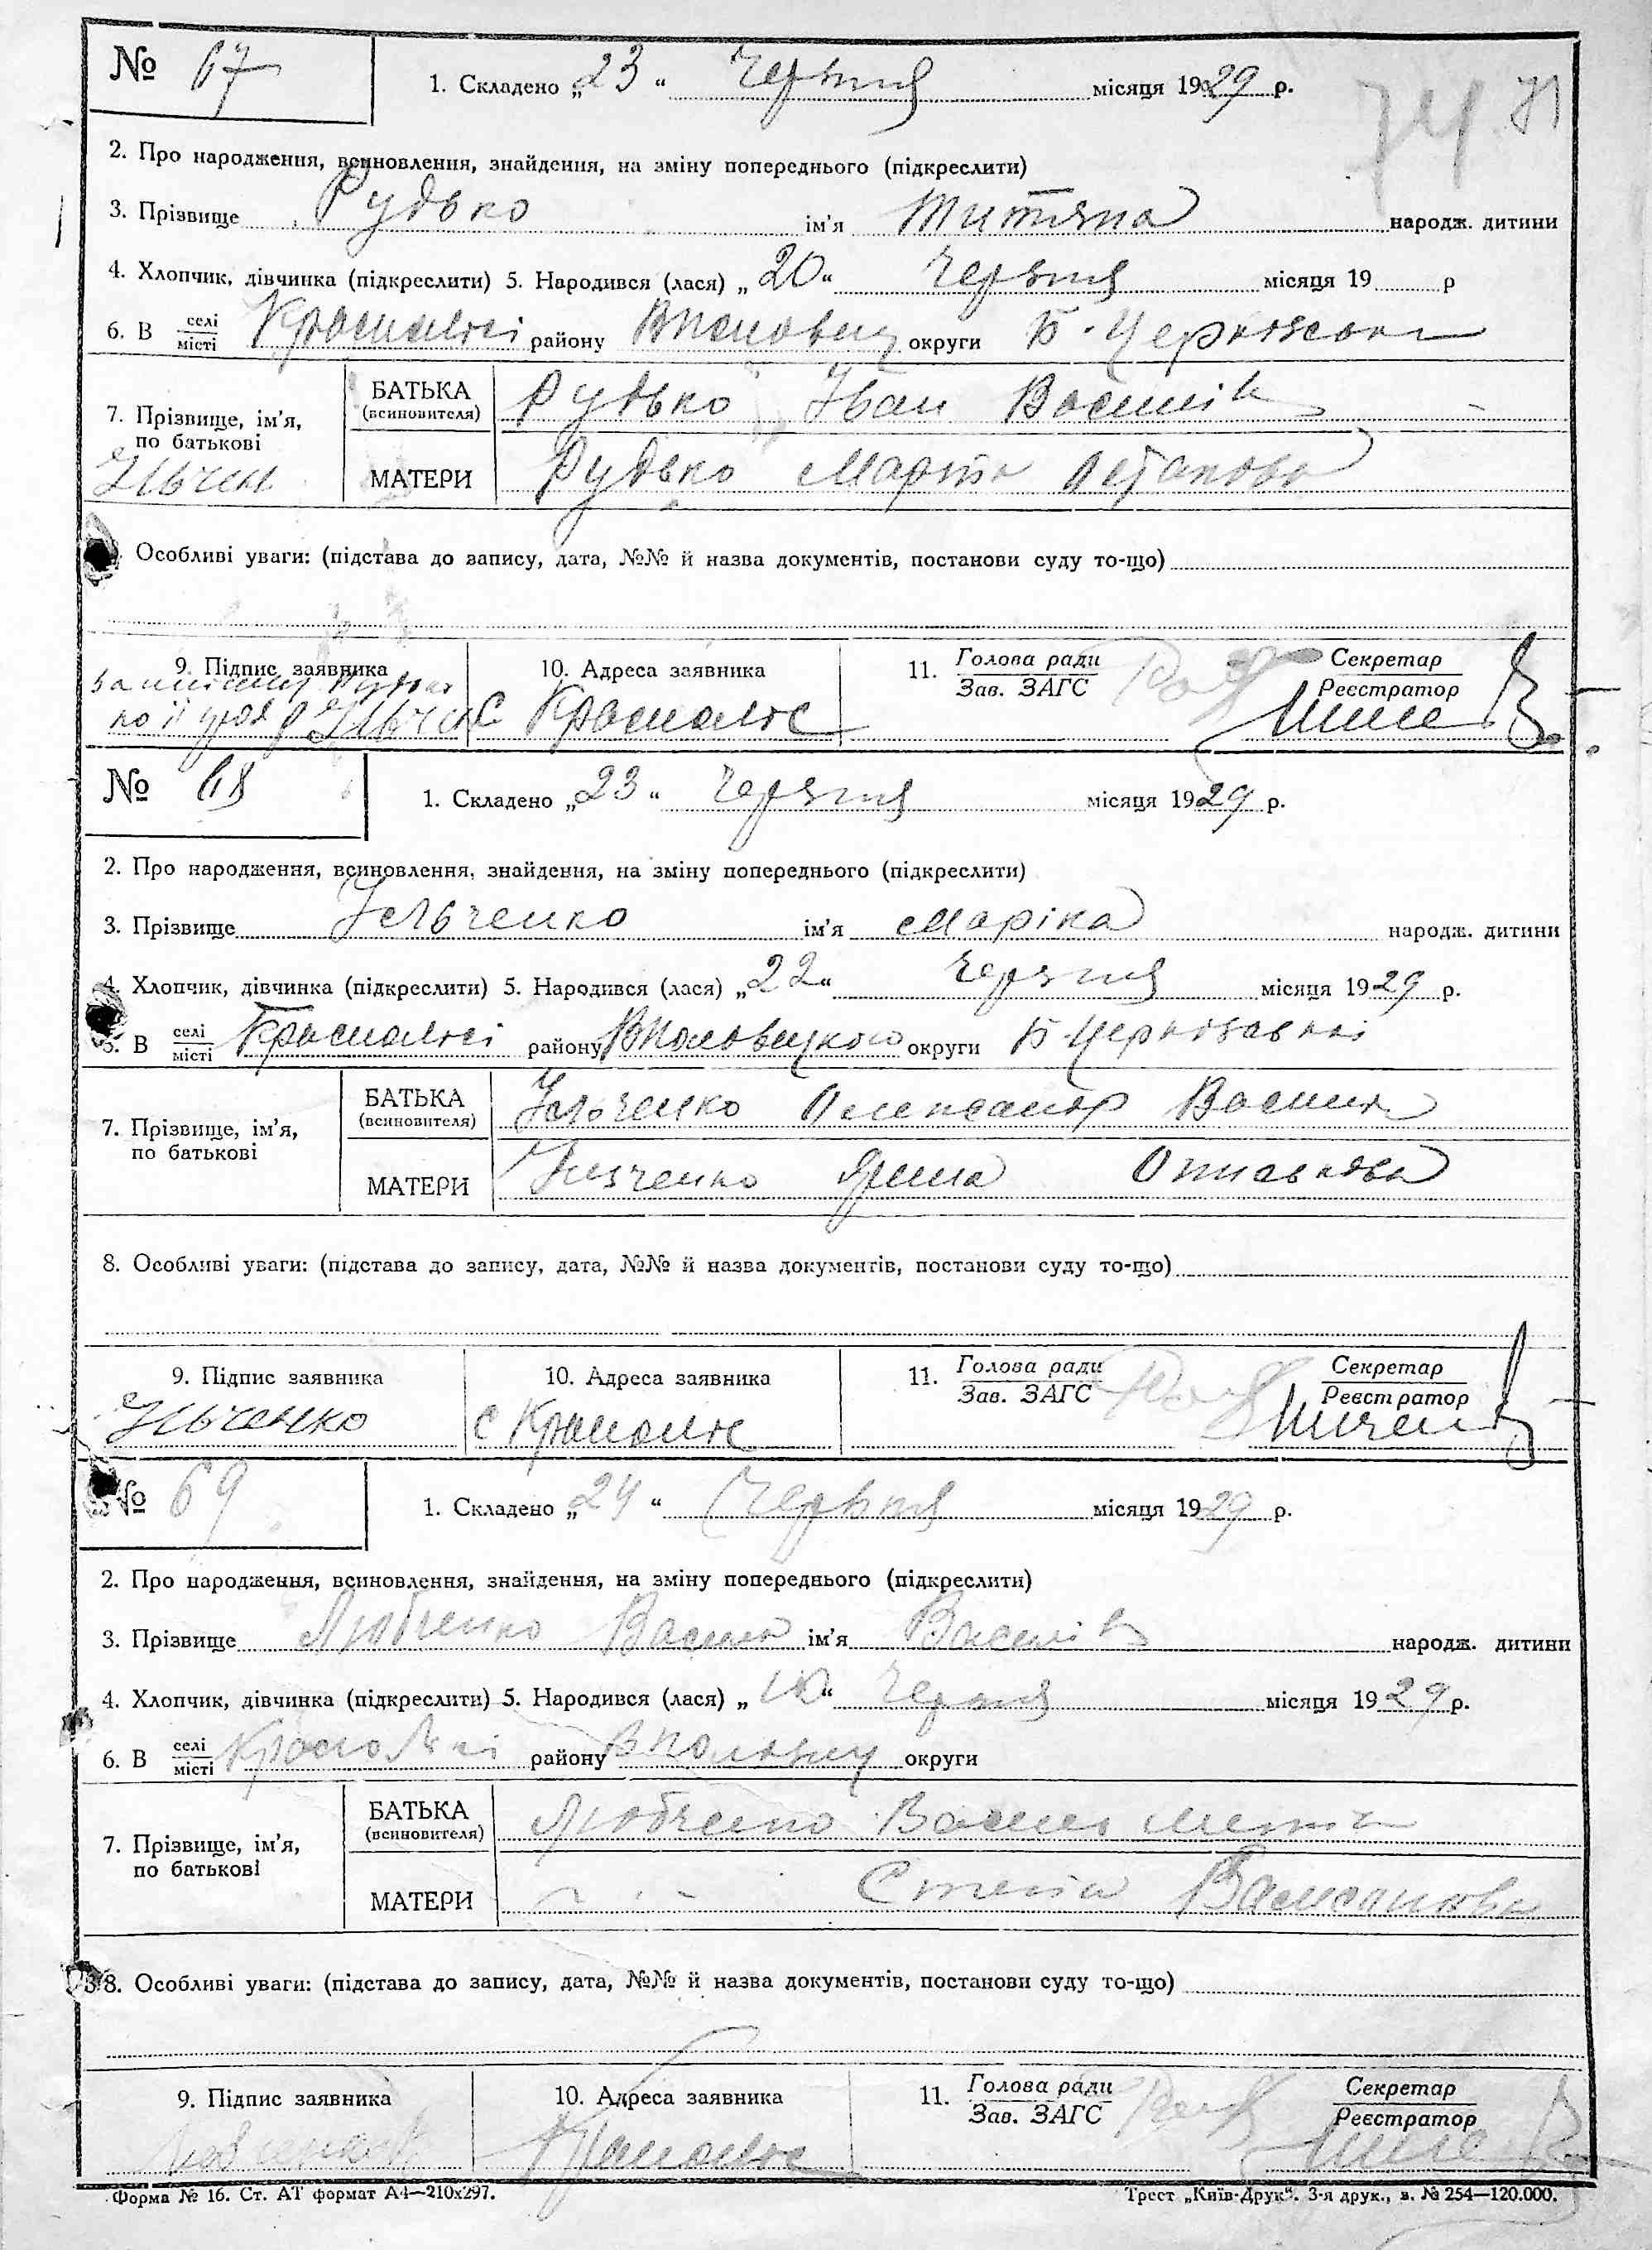 № 67
1. Складено „23“ Червня місяця 1929 р.
74. 71
2. Про народження, всиновлення, знайдення, на зміну попереднього (підкреслити)
3. Прізвище Рудько ім'я Титяна народж. дитини
4. Хлопчик, дівчинка (підкреслити) 5. Народився (лася) „20“ Червня місяця 19 р
6. В селі місті Красналісі району округи Б-Церківсько
7. Прізвище, ім'я, по батькові
БАТЬКА (всиновителя) Рудько Іван Васильів
МАТЕРИ Рудько Марта
Особливі уваги: (підстава до запису, дата, №№ й назва документів, постанови суду то-що)
9. Підпис заявника
10. Адреса заявника
С Красналіс
11. Голова ради Зав. ЗАГС
Секретар Реєстратор
№ 68
1. Складено „23“ Червня місяця 1929 р.
2. Про народження, всиновлення, знайдення, на зміну попереднього (підкреслити)
3. Прізвище Ільченко ім'я Маріка народж. дитини
4. Хлопчик, дівчинка (підкреслити) 5. Народився (лася) „22“ Червня місяця 1929 р.
6. В селі місті Красналісі району ВПоловецького округи Б Церківської
7. Прізвище, ім'я, по батькові
БАТЬКА (всиновителя) Ільченко Олександр Васильо
МАТЕРИ Ільченко Ярина
8. Особливі уваги: (підстава до запису, дата, №№ й назва документів, постанови суду то-що)
9. Підпис заявника
Ільченко
10. Адреса заявника
с Красналіс
11. Голова ради Зав. ЗАГС
Секретар Реєстратор
№ 69
1. Складено „24“ Червня місяця 1929 р.
2. Про народження, всиновлення, знайдення, на зміну попереднього (підкреслити)
3. Прізвище Любченко Василь ім'я Васильів народж. дитини
4. Хлопчик, дівчинка (підкреслити) 5. Народився (лася) „ “ Червня місяця 1929 р.
6. В селі місті району округи
7. Прізвище, ім'я, по батькові
БАТЬКА (всиновителя) Любченко Василь
МАТЕРИ
8. Особливі уваги: (підстава до запису, дата, №№ й назва документів, постанови суду то-що)
9. Підпис заявника
10. Адреса заявника
11. Голова ради Зав. ЗАГС
Секретар Реєстратор
Форма № 16. Ст. АТ формат А4—210х297.
Трест „Київ-Друк“. 3-я друк., з. № 254—120.000.